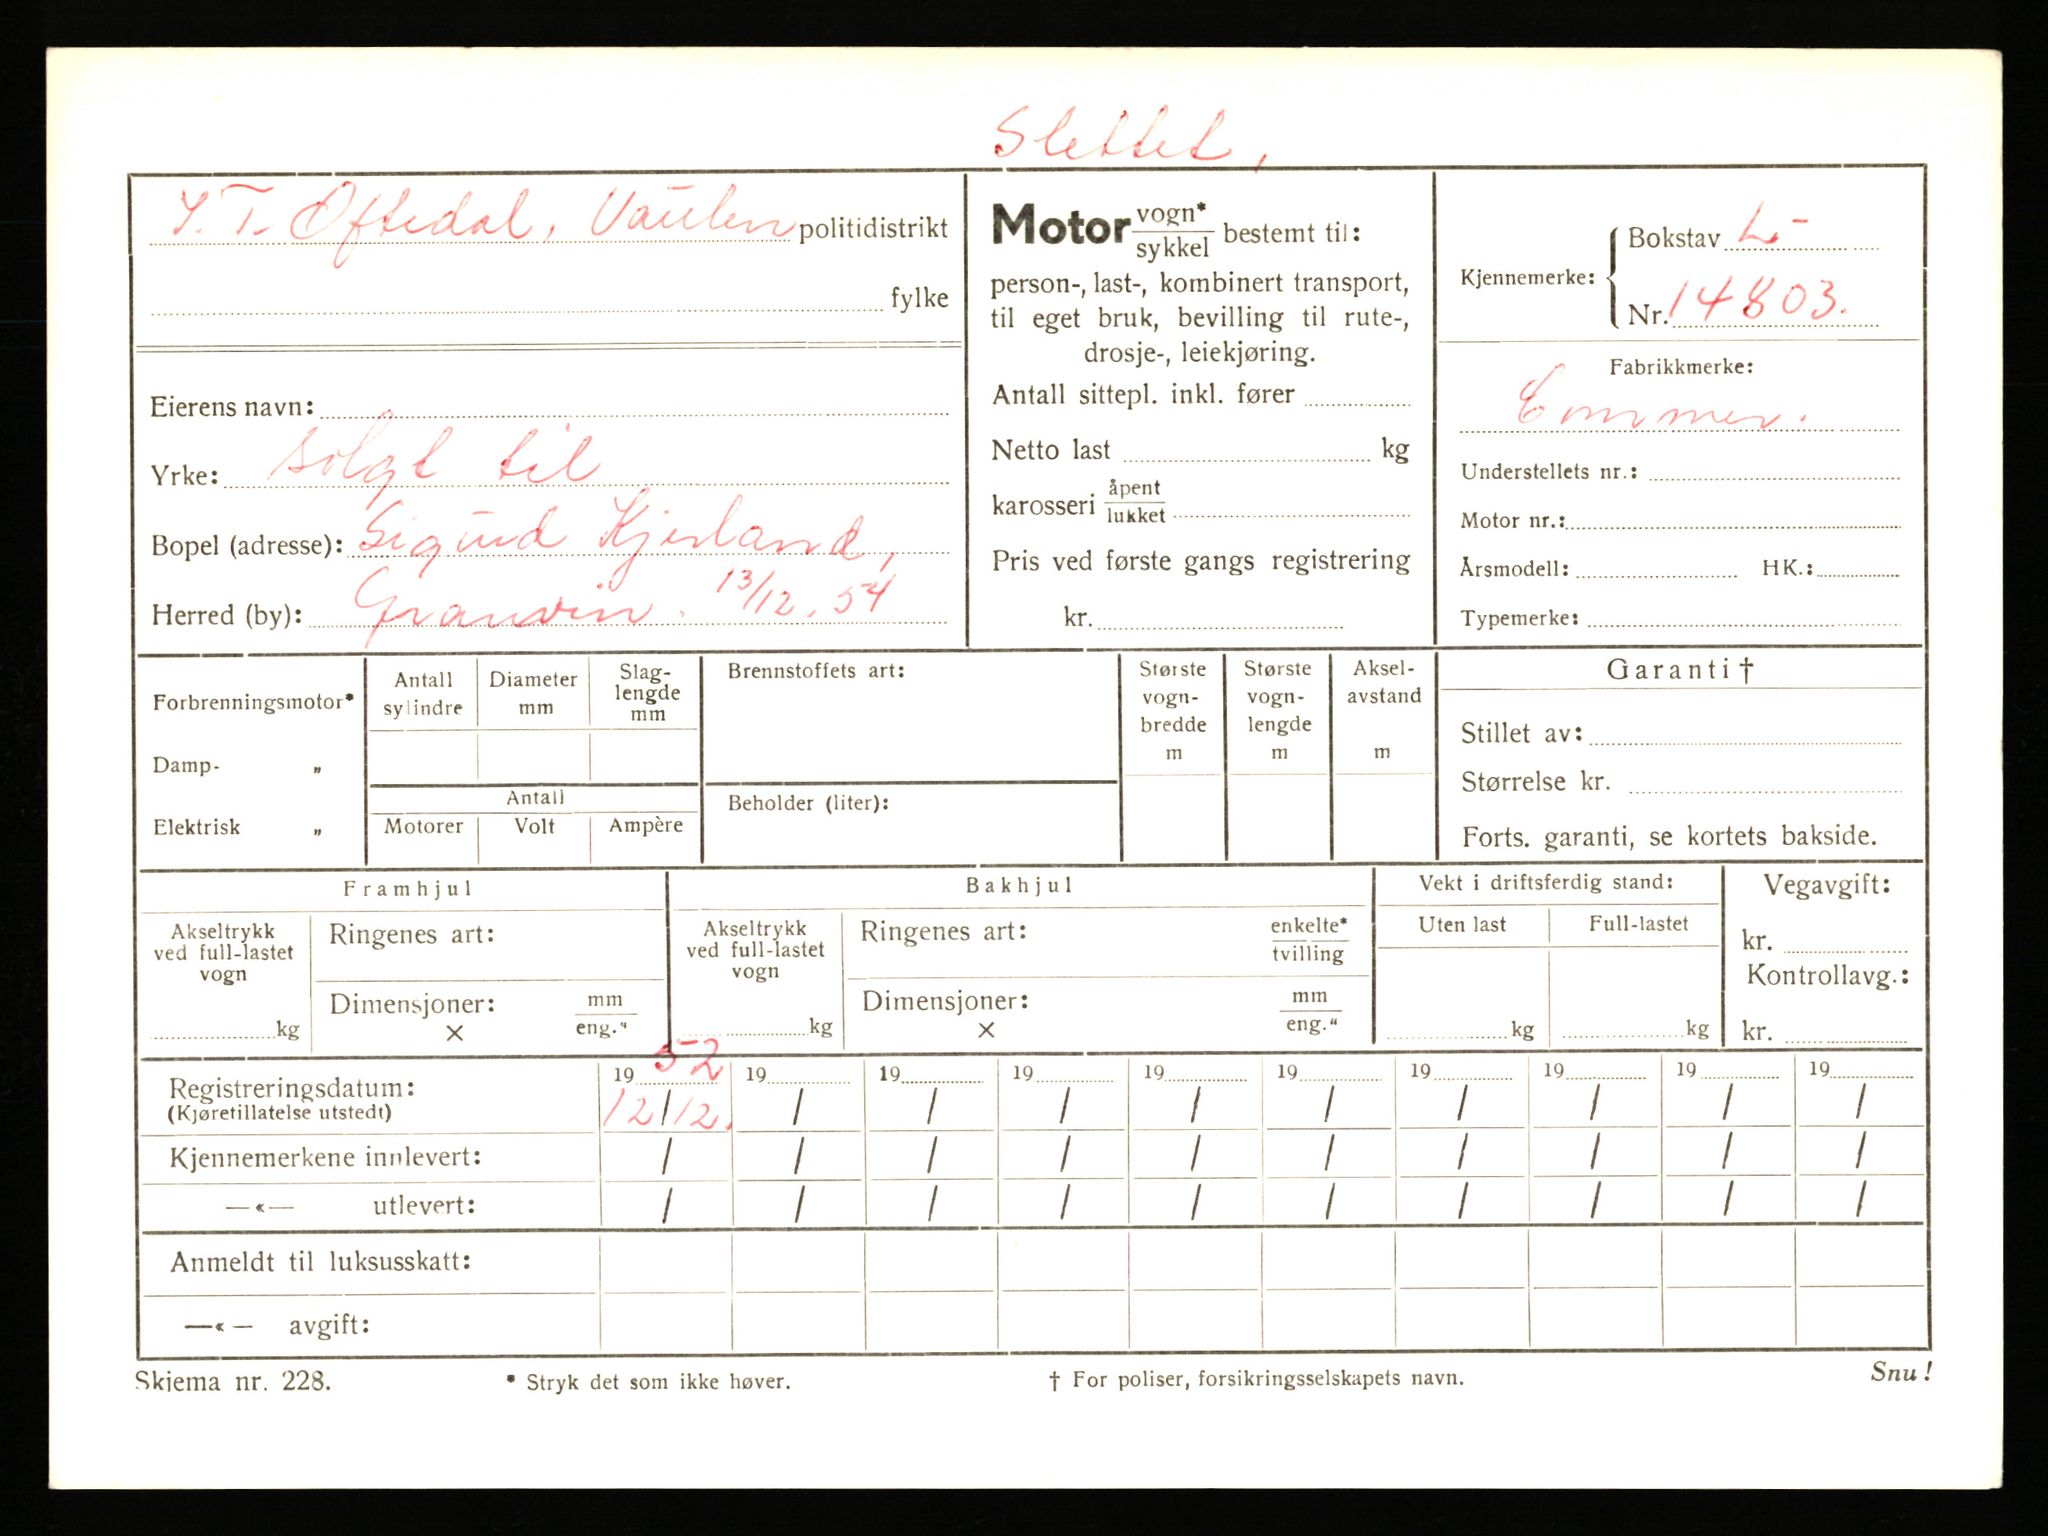 Slettet,
Y. T. Oftedal, Vaulen politidistrikt
fylke
Eierens navn:
Yrke: solgt til
Bopel (adresse): Sigurd Kjerland,
Herred (by): Granvin. 13/12.54
Motor vogn*/sykkel bestemt til:
person-, last-, kombinert transport,
til eget bruk, bevilling til rute-,
drosje-, leiekjøring.
Antall sittepl. inkl. fører
Netto last kg
karosseri åpent/lukket
Pris ved første gangs registrering
kr.
Kjennemerke: Bokstav L-
Nr. 14803.
Fabrikkmerke:
Commer.
Understellets nr.:
Motor nr.:
Årsmodell: HK.:
Typemerke:
Forbrenningsmotor*
Damp- „
Elektrisk „
Antall sylindre
Diameter mm
Slag-lengde mm
Antall
Motorer Volt Ampère
Brennstoffets art:
Beholder (liter):
Største vogn-bredde m
Største vogn-lengde m
Aksel-avstand m
Garanti †
Stillet av:
Størrelse kr.
Forts. garanti, se kortets bakside.
Framhjul
Akseltrykk
ved full-lastet
vogn
kg
Ringenes art:
Dimensjoner: mm/eng."
×
Bakhjul
Akseltrykk
ved full-lastet
vogn
kg
Ringenes art: enkelte*/tvilling
Dimensjoner: mm/eng."
×
Vekt i driftsferdig stand:
Uten last Full-lastet
kg kg
Vegavgift:
kr.
Kontrollavg.:
kr.
Registreringsdatum: 1952 19 19 19 19 19 19 19 19 19
(Kjøretillatelse utstedt) 12/12. / / / / / / / / /
Kjennemerkene innlevert: / / / / / / / / / /
—«— utlevert: / / / / / / / / / /
Anmeldt til luksusskatt:
—«— avgift:
Skjema nr. 228. * Stryk det som ikke høver. † For poliser, forsikringsselskapets navn. Snu!